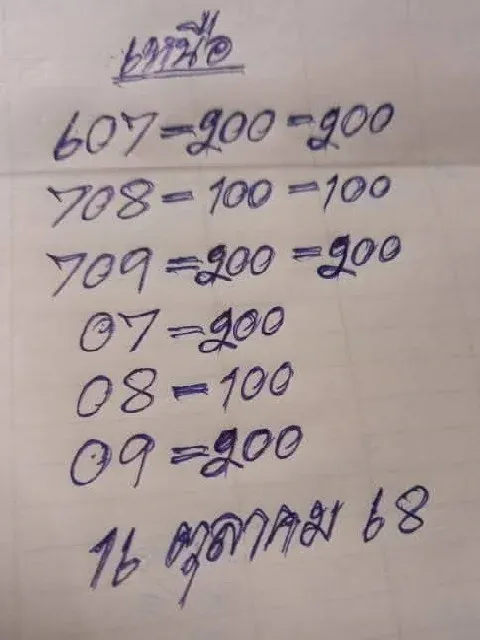 เหนือ
607=200=200
708=100=100
709=200=200
07=200
08=100
09=200
16 ตุลาคม 68